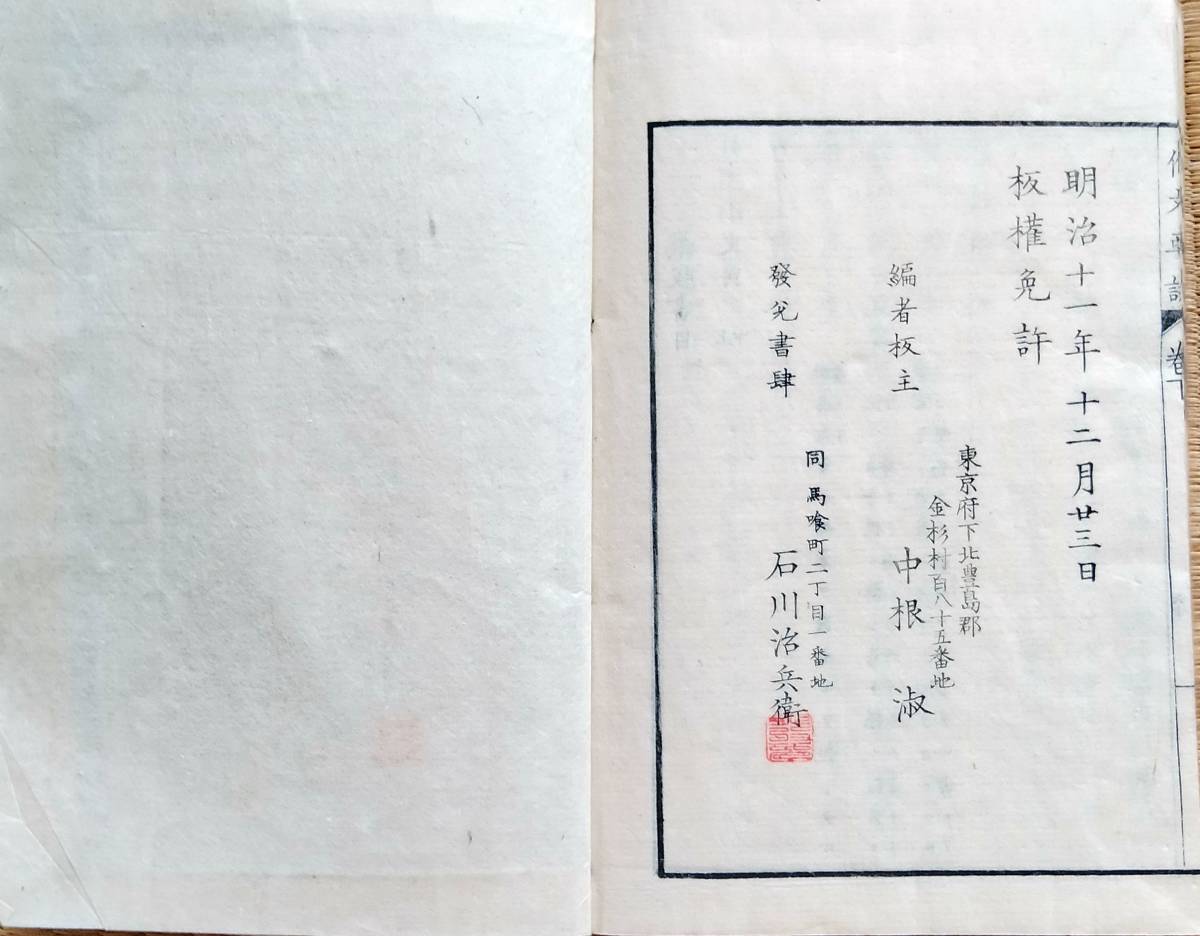 明治十一年十二月廿三日
板權免許
東京府下北豊島郡
金杉村百八十五番地
編者板主 中根 淑
同 馬喰町二丁目一番地
發兌書肆 石川治兵衛
卷下